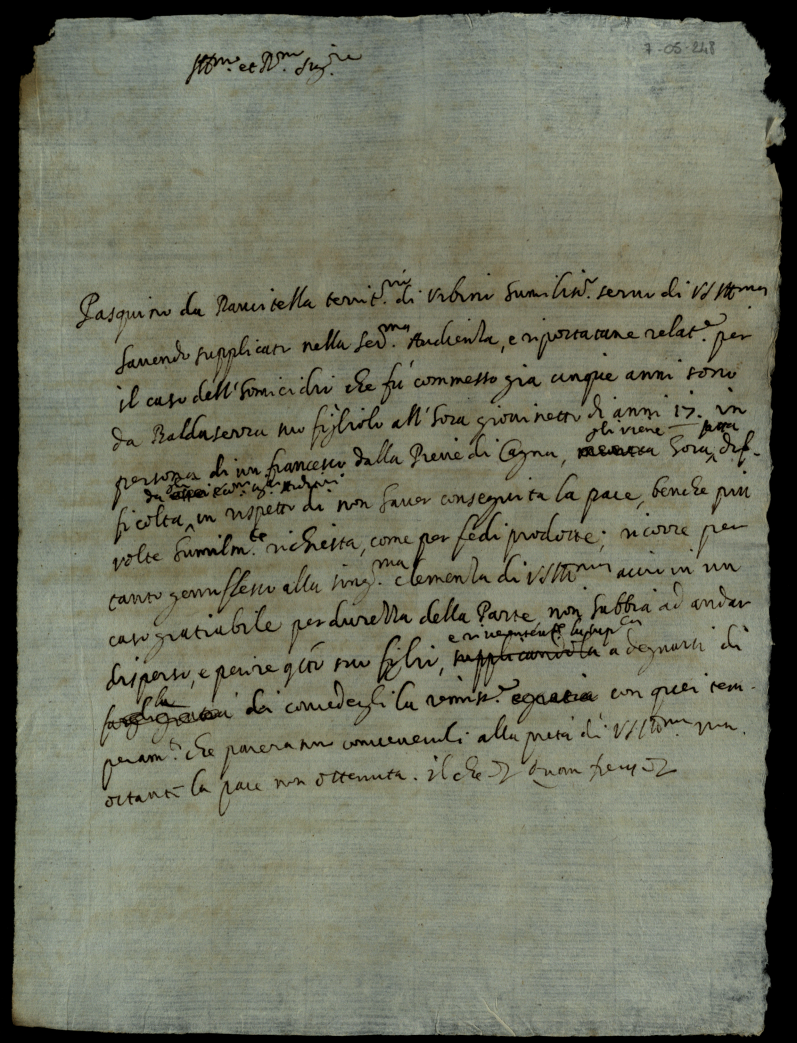 7-05-248
Ill.mo et R.mo Sig.re
Pasquino da territ.rio di Urbino humiliss.o servo di VS Ill.ma
havendo supplicato nella Ser.ma Audienza, e riportatane relat.e per
il caso dell'homicidio che fù commesso già cinque anni sono
da Baldaserra suo figliolo all'hora giovinetto di anni 17. in
persona di un francesco dalla Pieve di Cagna, gli viene hora fatta dif-
ficoltà, da in rispetto di non haver conseguita la pace, benche più
volte humilm.te richiesta, come per fedi prodotte; ricorre per
tanto genuflesso alla sing.ma clemenza di VS Ill.ma acciò in un
caso gratiabile per durezza della Parte non habbia ad andar
disperso, e perire q.to suo figlio, e riverente la sup.ca supplicandola a degnarsi di
la di concedergli la remiss.e e gratia con quei tem-
peram.ti che pareranno convenevoli alla pietà di VS Ill.ma non
ostante la pace non ottenuta. il che